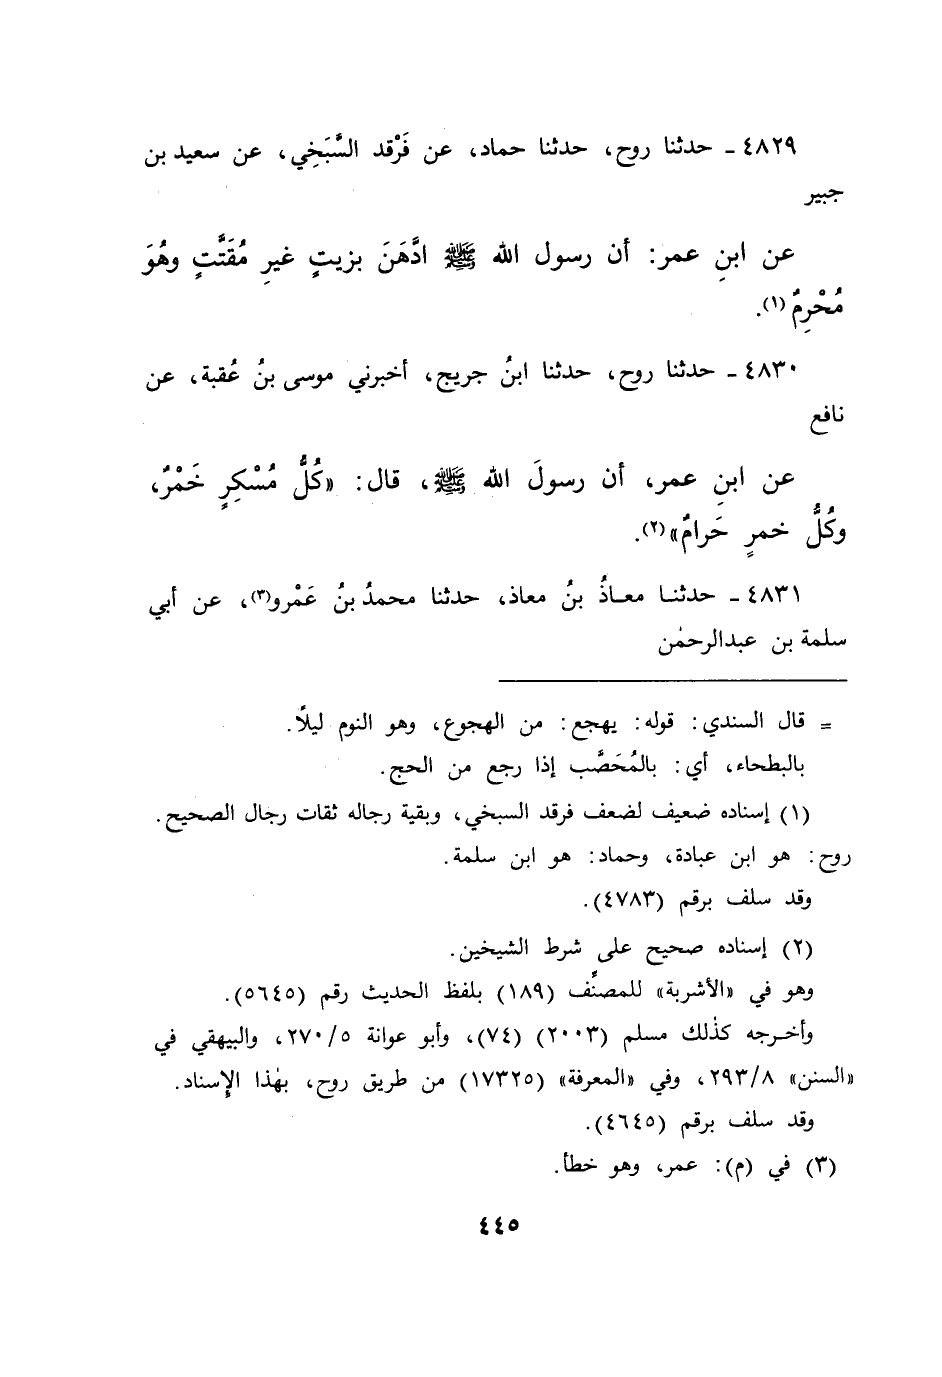 ٤٨٢٩ - حدثنا روح، حدثنا حماد، عن فَرْقد السَّبَخِي، عن سعيد بن
جبير
عن ابنِ عمر: أن رسول الله ﷺ ادَّهَنَ بزيتٍ غيرِ مُقَتَّتٍ وهُوَ
مُحْرِمٌ(١).
٤٨٣٠ - حدثنا روح، حدثنا ابنُ جريج، أخبرني موسى بنُ عُقبة، عن
نافع
عن ابنِ عمر، أن رسولَ الله ﷺ، قال: «كُلُّ مُسْكِرٍ خَمْرٌ،
وكُلُّ خمرٍ حَرامٌ»(٢).
٤٨٣١ - حدثنا معاذُ بنُ معاذ، حدثنا محمدُ بنُ عَمْرو(٣)، عن أبي
سلمة بن عبدالرحمٰن
= قال السندي: قوله: يهجع: من الهجوع، وهو النوم ليلًا.
بالبطحاء، أي: بالمُحَصَّب إذا رجع من الحج.
(١) إسناده ضعيف لضعف فرقد السبخي، وبقية رجاله ثقات رجال الصحيح.
روح: هو ابن عبادة، وحماد: هو ابن سلمة.
وقد سلف برقم (٤٧٨٣).
(٢) إسناده صحيح على شرط الشيخين.
وهو في «الأشربة» للمصنِّف (١٨٩) بلفظ الحديث رقم (٥٦٤٥).
وأخرجه كذٰلك مسلم (٢٠٠٣) (٧٤)، وأبو عوانة ٢٧٠/٥، والبيهقي في
«السنن» ٢٩٣/٨، وفي «المعرفة» (١٧٣٢٥) من طريق روح، بهٰذا الإِسناد.
وقد سلف برقم (٤٦٤٥).
(٣) في (م): عمر، وهو خطأ.
٤٤٥